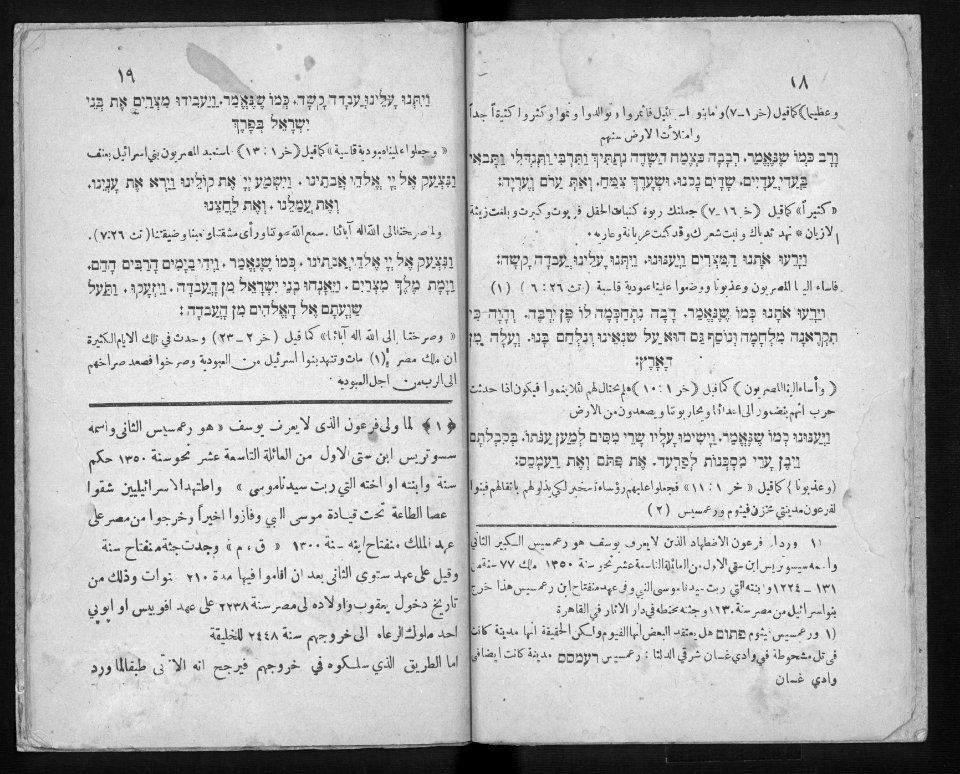 ١٨
وعظيما) كما قيل (خر ١–٧) وبنو اسرائيل فاثمروا وتوالدوا ونموا وكثروا كثيرًا جدًا
وامتلأت الارض منهم
וָרָב כְּמוֹ שֶׁנֶּאֱמַר. רְבָבָה כְּצֶמַח הַשָּׂדֶה נְתַתִּיךְ וַתִּרְבִּי וַתִּגְדְּלִי וַתָּבֹאִי
בַּעֲדִי עֲדָיִים. שָׁדַיִם נָכֹנוּ. וּשְׂעָרֵךְ צִמֵּחַ. וְאַתְּ עֵרֹם וְעֶרְיָה:
«كثيراً» كما قيل (خر ١٦–٧) جعلتك ربوة كنبات الحقل فربوت وكبرت وبلغت زينة
الازيان * نهد ثدياك ونبت شعرك وقد كنت عريانة وعارية ٠
וַיָּרֵעוּ אֹתָנוּ הַמִּצְרִים וַיְעַנּוּנוּ. וַיִּתְּנוּ עָלֵינוּ עֲבֹדָה קָשָׁה:
فاساء الينا المصريون وعذبونا ووضعوا علينا عبودية قاسية (تث ٢٦ : ٦) (١)
וַיָּרֵעוּ אֹתָנוּ כְּמוֹ שֶׁנֶּאֱמַר. הָבָה נִתְחַכְּמָה לוֹ פֶּן יִרְבֶּה. וְהָיָה כִּי
תִקְרֶאנָה מִלְחָמָה וְנוֹסַף גַּם הוּא עַל שֹׂנְאֵינוּ וְנִלְחַם בָּנוּ. וְעָלָה מִן
הָאָרֶץ:
(وأساء الينا المصريون) كما قيل (خر ١ : ١٠) هلم نحتال لهم لئلا ينموا فيكون اذا حدثت
حرب انهم ينضمون الى اعدائنا ويحاربوننا ويصعدون من الارض
וַיְעַנּוּנוּ כְּמוֹ שֶׁנֶּאֱמַר. וַיָּשִׂימוּ עָלָיו שָׂרֵי מִסִּים לְמַעַן עַנֹּתוֹ. בְּסִבְלֹתָם
וַיִּבֶן עָרֵי מִסְכְּנוֹת לְפַרְעֹה. אֶת פִּתֹם וְאֶת רַעַמְסֵס:
(وعذبونا) كما قيل « خر ١ : ١١ » فجعلوا عليهم رؤساء تسخير لكي يذلوهم باثقالهم فبنوا
لفرعون مدينتي مخازن فيثوم ورعمسيس (٢)
١) وردا. فرعون الاضطهاد الذي لا يعرف يوسف هو رعمسيس الكبير الثاني
واسمه سيسوستريس ابن ستي الاول من العائلة التاسعة عشر نحو سنة ١٣٥٠ ملك ٧٧ سنة من
١٣١ – ١٢٢٤ وابنته التي ربت سيدنا موسى النبي وفي عهد منفتاح ابن رعمسيس هذا خرج
بنو اسرائيل من مصر سنة ١٢٣٠ وجثته محنطه في دار الاثار في القاهرة
١) ورعمسيس فيثوم פתום هل يعتقد البعض أنها الفيوم ولكن الحقيقة أنها مدينة كانت
في تل مشحوطة في وادي غسان شرقي الدلتا : رعمسيس רעמסס مدينة كانت ايضا في
وادي غسان
١٩
וַיִּתְּנוּ עָלֵינוּ עֲבֹדָה קָשָׁה. כְּמוֹ שֶׁנֶּאֱמַר. וַיַּעֲבִידוּ מִצְרַיִם אֶת בְּנֵי
יִשְׂרָאֵל בְּפָרֶךְ
« وجعلوا علينا عبودية قاسية » كما قيل (خر ١ : ١٣) استعبد المصريون بني اسرائيل بعنف
וַנִּצְעַק אֶל יְיָ אֱלֹהֵי אֲבֹתֵינוּ . וַיִּשְׁמַע יְיָ אֶת קוֹלֵינוּ וַיַּרְא אֶת עָנְיֵנוּ.
וְאֶת עֲמָלֵנוּ . וְאֶת לַחֲצֵנוּ
ولما صرخنا الى الله اله آبائنا . سمع الله صوتنا ورأى مشقتنا وتعبنا وضيقتنا (تث ٢٦ :٧).
וַנִּצְעַק אֶל יְיָ אֱלֹהֵי אֲבֹתֵינוּ . כְּמוֹ שֶׁנֶּאֱמַר . וַיְהִי בַיָּמִים הָרַבִּים הָהֵם.
וַיָּמָת מֶלֶךְ מִצְרַיִם . וַיֵּאָנְחוּ בְנֵי יִשְׂרָאֵל מִן הָעֲבֹדָה . וַיִּזְעָקוּ . וַתַּעַל
שַׁוְעָתָם אֶל הָאֱלֹהִים מִן הָעֲבֹדָה :
« وصرخنا الى الله اله آبائنا » كما قيل (خر ٢ – ٢٣) وحدث في تلك الايام الكثيرة
ان ملك مصر (١) مات وتنهد بنوا اسرئيل من العبودية وصرخوا فصعد صراخهم
الى الرب من اجل العبودية
﴿١﴾ لما ولى فرعون الذى لا يعرف يوسف « هو رعمسيس الثانى واسمه
سسوتريس ابن ستى الاول من العائلة التاسعة عشر نحو سنة ١٣٥٠ حكم
سنة وابنته او اخته التي ربت سيدنا موسى » واضطهد الاسرائيليين شقوا
عصا الطاعة تحت قيادة موسى النبي وفازوا اخيراً وخرجوا من مصر على
عهد الملك منفتاح ابنه سنة ١٣٠٠ « ق ، م » وجدت جثة منفتاح سنة
وقيل على عهد ستوى الثانى بعد ان اقاموا فيها مدة ٢١٠ سنوات وذلك من
تاريخ دخول يعقوب واولاده لى مصر سنة ٢٢٣٨ على عهد افوبيس او ابوبي
احد ملوك الرعاه الى خروجهم سنة ٢٤٤٨ للخليقة
اما الطريق الذي سلكوه في خروجهم فيرجح انه الاتى طبقا لما ورد